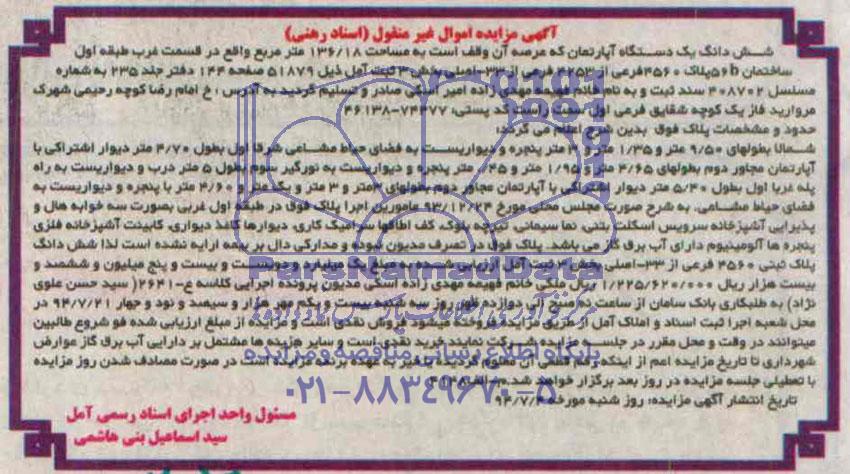 آگهی مزایده اموال غیر منقول (اسناد رهنی)
شش دانگ یک دستگاه آپارتمان که عرصه آن وقف است به مساحت ۱۳۶/۱۸ متر مربع واقع در قسمت غرب طبقه اول
ساختمان ۵۶b پلاک ۴۵۶۰ فرعی از ۴۲۵۳ فرعی از ۳۳-اصلی بخش ۳ ثبت آمل ذیل ۵۱۸۷۹ صفحه ۱۴۴ دفتر جلد ۲۳۵ به شماره
مسلسل ۴۰۸۷۰۲ سند ثبت و به نام خانم فهیمه مهدی زاده امیر اسکی صادر و تسلیم گردید به آدرس : خ امام رضا کوچه رحیمی شهرک
مروارید فاز یک کوچه شقایق فرعی اول سمت راست کد پستی: ۷۴۴۷۷-۴۶۱۳۸
حدود و مشخصات پلاک فوق بدین شرح اعلام می گردد:
شمالا بطولهای ۹/۵۰ متر و ۱/۳۵ متر و ۳ متر پنجره و دیواریست به فضای حیاط مشاعی شرقا اول بطول ۴/۷۰ متر دیوار اشتراکی با
آپارتمان مجاور دوم بطولهای ۴/۶۵ متر و ۱/۹۵ متر و متر پنجره و دیواریست به نورگیر سوم بطول ۵ متر درب و دیواریست به راه
پله غربا اول بطول ۵/۴۰ متر دیوار اشتراکی با آپارتمان مجاور دوم بطولهای ۳ متر و ۳ متر و یک متر و ۴/۶۰ متر با پنجره و دیواریست به
فضای حیاط مشاعی. به شرح صورت مجلس محلی مورخ ۹۳/۱۲/۲۴ مامورین اجرا پلاک فوق در طبقه اول غربی بصورت سه خوابه هال و
پذیرایی آشپزخانه سرویس اسکلت بتنی، نما سیمانی، تیرچه بلوک، کف اطاقها سرامیک کاری، دیوارها کاغذ دیواری، کابینت آشپزخانه فلزی
پنجره ها آلومینیوم دارای آب برق گاز می باشد. پلاک فوق در تصرف مدیون نبوده و مدارکی دال بر بیمه ارایه نشده است لذا شش دانگ
پلاک ثبتی ۴۵۶۰ فرعی از ۳۳-اصلی بخش ۳ ثبت آمل ارزیابی شده به مبلغ یک میلیارد و دویست و بیست و پنج میلیون و ششصد و
بیست هزار ریال ۱/۲۲۵/۶۲۰/۰۰۰ ریال ملکی خانم فهیمه مهدی زاده اسکی مدیون پرونده اجرایی کلاسه ع-۲۶۴۱( سید حسن علوی
نژاد) به طلبکاری بانک سامان از ساعت نه صبح الی دوازده ظهر روز سه شنبه بیست و یکم مهر هزار و سیصد و نود و چهار ۹۴/۷/۲۱ در
محل شعبه اجرا ثبت اسناد و املاک آمل از طریق مزایده فروخته میشود فروش نقدی است و مزایده از مبلغ ارزیابی شده فو شروع طالبین
میتوانند در وقت و محل مقرر در جلسه مزایده شرکت نمایند خرید نقدی است و سایر هزینه ها مشتمل بر دارایی آب برق گاز عوارض
شهرداری تا تاریخ مزایده اعم از اینکه رقم قطعی آن معلوم گردیده یا خیر به عهده برنده مزایده است در صورت مصادف شدن روز مزایده
با تعطیلی جلسه مزایده در روز بعد برگزار خواهد شد.
تاریخ انتشار آگهی مزایده: روز شنبه مورخه ۹۴/۷/۴
مسئول واحد اجرای اسناد رسمی آمل
سید اسماعیل بنی هاشمی
ParsNamadData
پایگاه اطلاع رسانی مناقصه و مزایده
۰۲۱-۸۸۳۴۹۶۷۰-۵